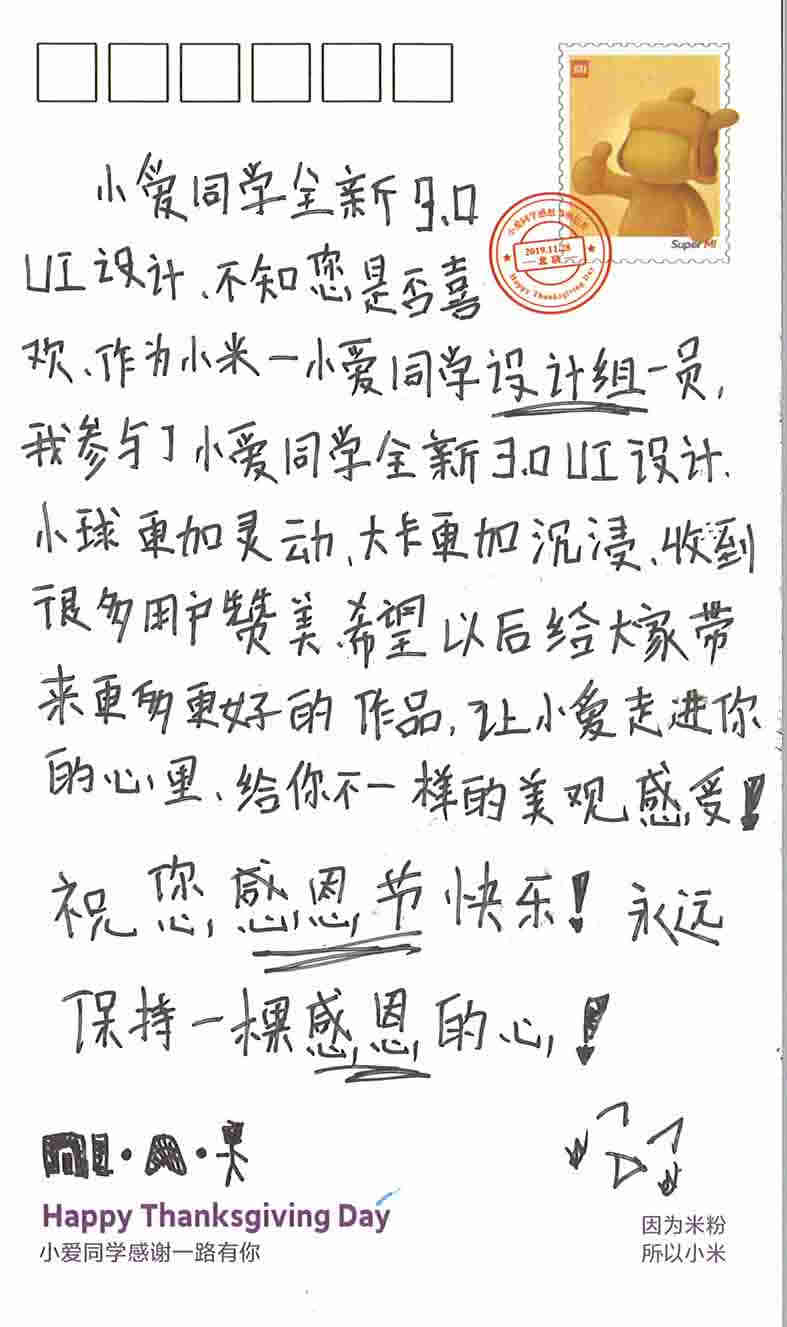 MI
Super MI
2019.11.28
Happy Thanksgiving Day
小爱同学全新3.0
UI设计、不知您是否喜
欢、作为小米一小爱同学设计组一员,
我参与了小爱同学全新3.0UI设计.
小球更加灵动、大卡更加沉浸、收到
很多用户赞美.希望以后给大家带
来更多更好的作品,让小爱走进你
的心里、给你不一样的美观感受!
祝您感恩节快乐!永远
保持一棵感恩的心!
Happy Thanksgiving Day
小爱同学感谢一路有你
因为米粉
所以小米